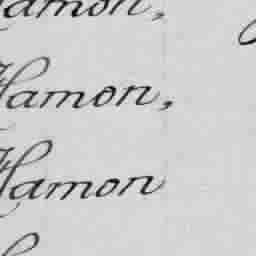 Hamon,
Hamon,
Hamon